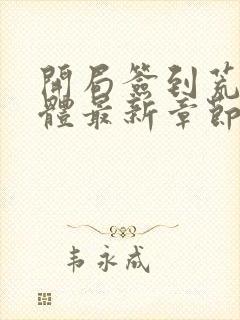 開局簽到荒
體最新章節
韦永成